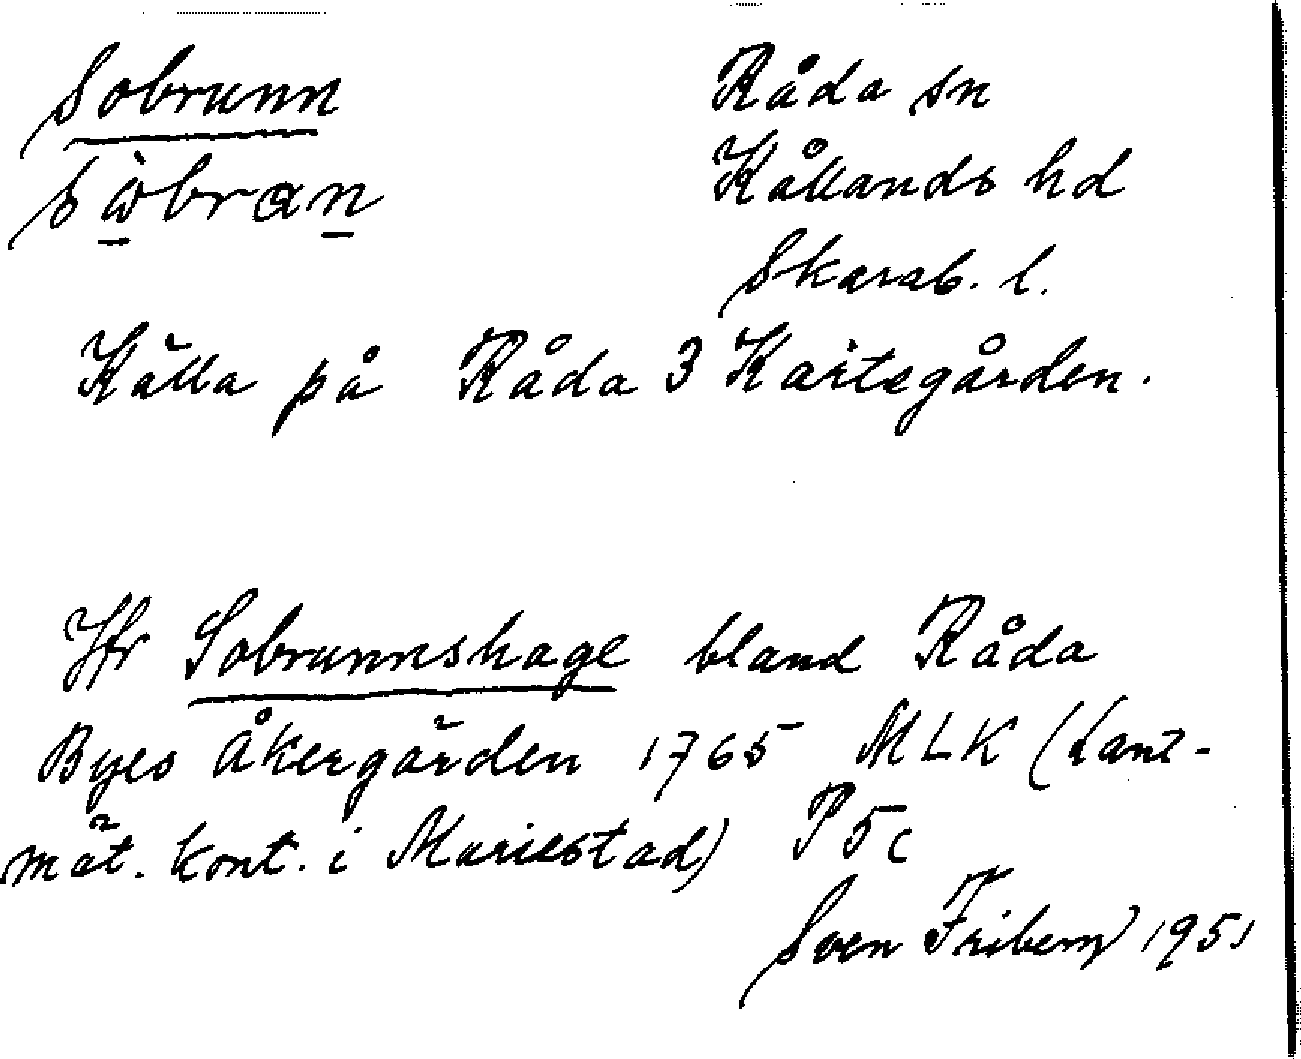 Sobrunn
Råda sn
sòbran
Kållands hd
Skarab. l.
Källa på Råda 3 Kaitsgården.
Jfr Sobrunnshage bland Råda
Byes åkergärden 1765 MLK (Lant-
mät. kont. i Mariestad) P 5c
Sven Friberg 1951